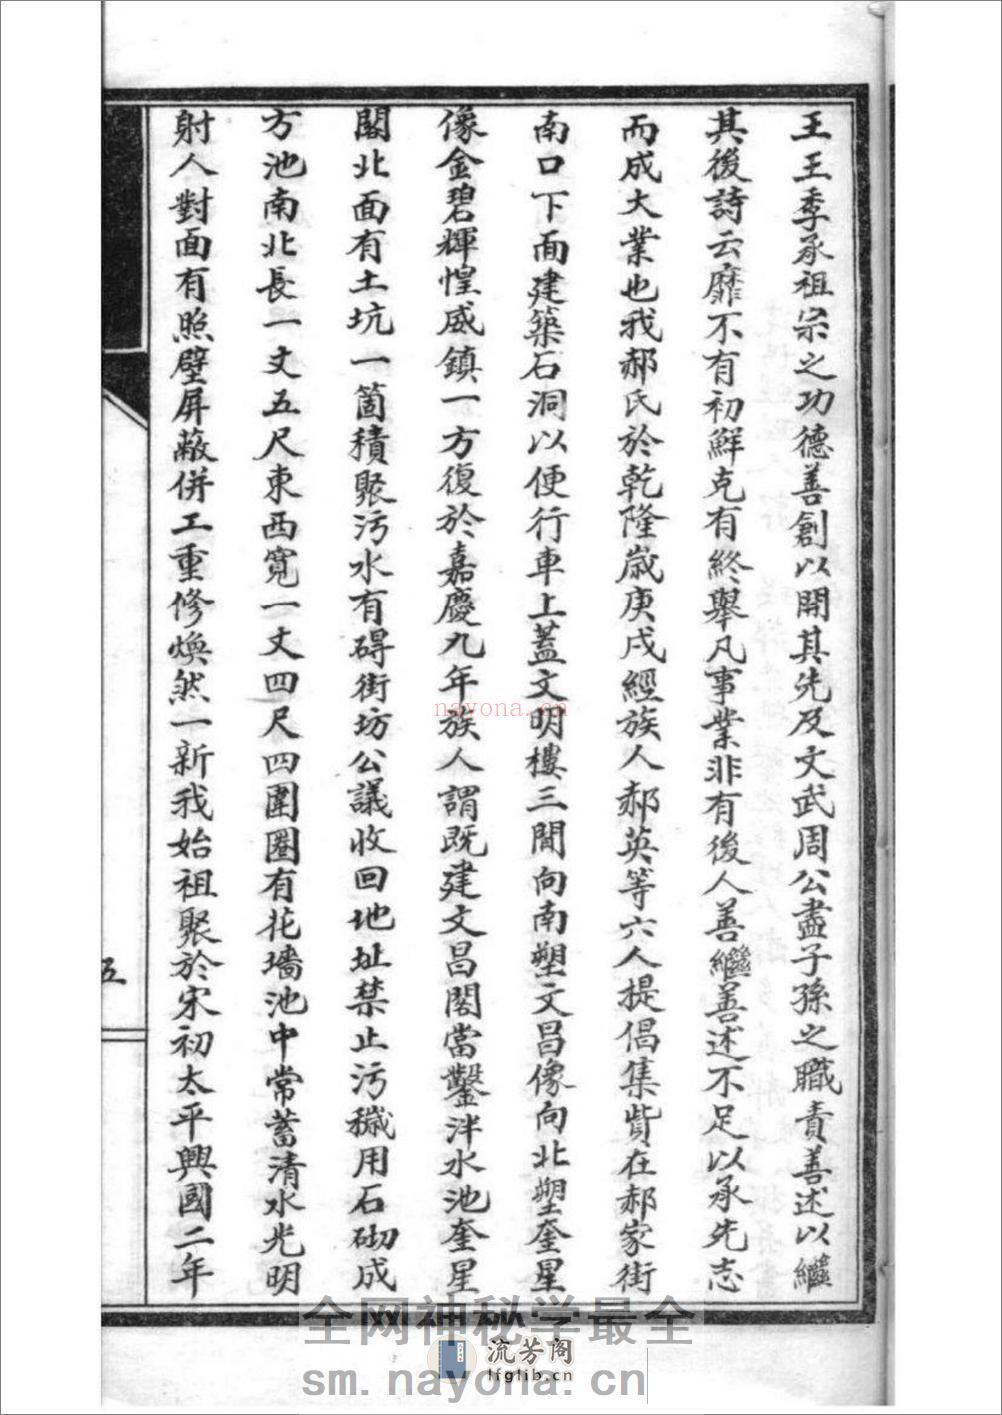 王王季承祖宗之功德善創以開其先及文武周公盡子孫之職責善述以繼
其後詩云靡不有初鮮克有終舉凡事業非有後人善繼善述不足以承先志
而成大業也我郝氏於乾隆歲庚戌經族人郝英等六人提倡集貲在郝家街
南口下面建築石洞以便行車上蓋文明樓三間向南塑文昌像向北塑奎星
像金碧輝惶威鎮一方復於嘉慶九年族人謂既建文昌閣當鑿泮水池奎星
閣北面有土坑一箇積聚污水有碍街坊公議收回地址禁止污穢用石砌成
方池南北長一丈五尺東西寬一丈四尺四圍圈有花墻池中常蓄清水光明
射人對面有照壁屏蔽併工重修煥然一新我始祖聚於宋初太平興國二年
五
nayona.cn
全网神秘学最全
流芳阁
lfglib.cn
sm.nayona.cn